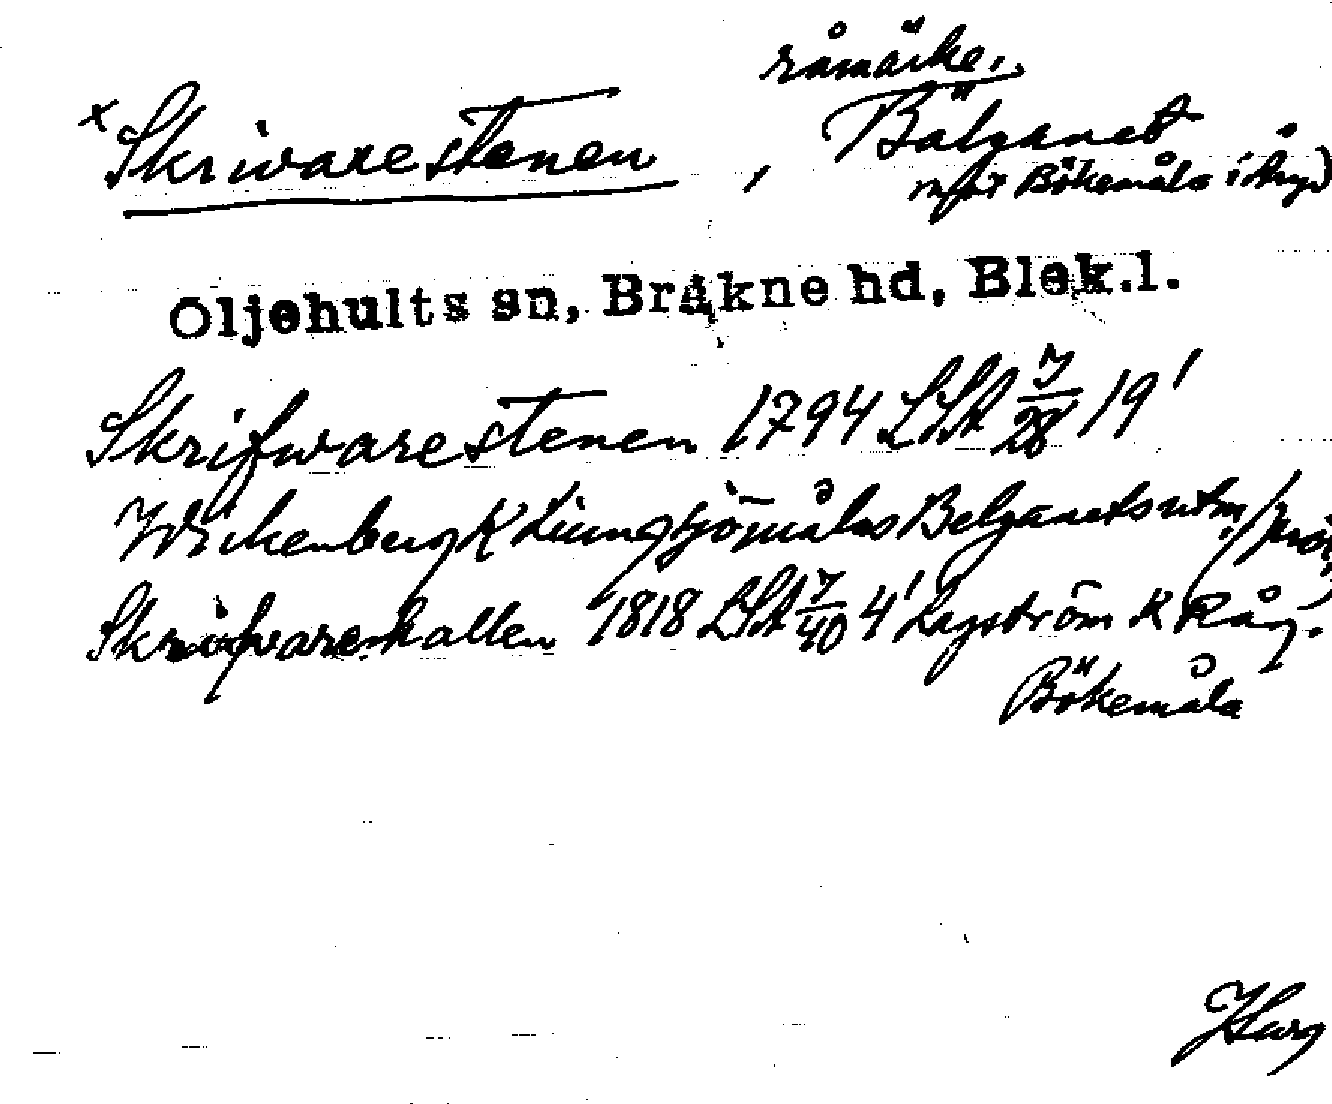 råmärke,
x Skrivarestenen, Bälganet
mot Bökemåla i Åryd)
Oljehults sn, Bräkne hd, Blek.l.
Skrifwarestenen 1794 LSA 7/28 19'
Wickenberg K Ljungsjömålas Belganets utm.
Skrifwarehallen 1818 LSA 7/40 4' Lagström K Råg.
Bökemåla